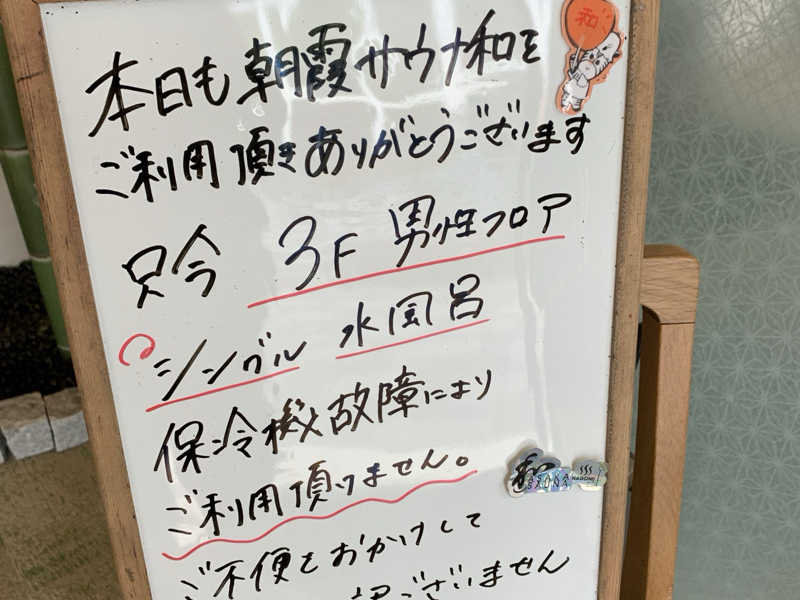 本日も朝霞サウナ和を
ご利用頂きありがとうございます
只今 3F 男性フロア
シングル 水風呂
保冷機故障により
ご利用頂けません。
ご不便をおかけして
ございません
和
和
SAUNA NAGOMI